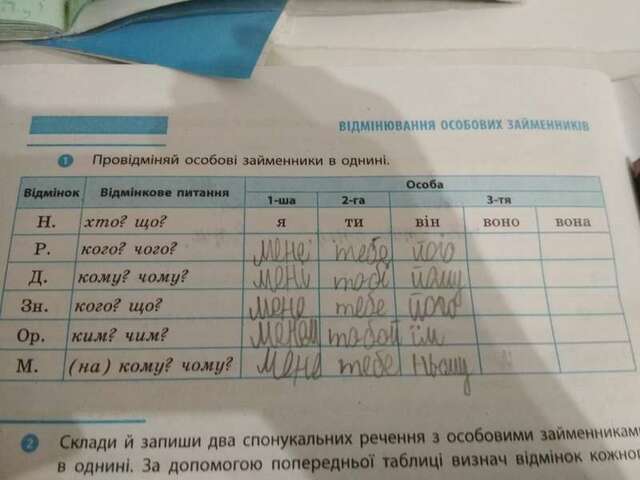 ВІДМІНЮВАННЯ ОСОБОВИХ ЗАЙМЕННИКІВ
1 Провідміняй особові займенники в однині.
Відмінок Відмінкове питання Особа
1-ша 2-га 3-тя
Н. хто? що? я ти він воно вона
Р. кого? чого? мене тебе його
Д. кому? чому? мені тобі йому
Зн. кого? що? мене тебе його
Ор. ким? чим? тобой їм
М. (на) кому? чому? мене тебе ньому
2 Склади й запиши два спонукальних речення з особовими займенниками
в однині. За допомогою попередньої таблиці визнач відмінок кожного